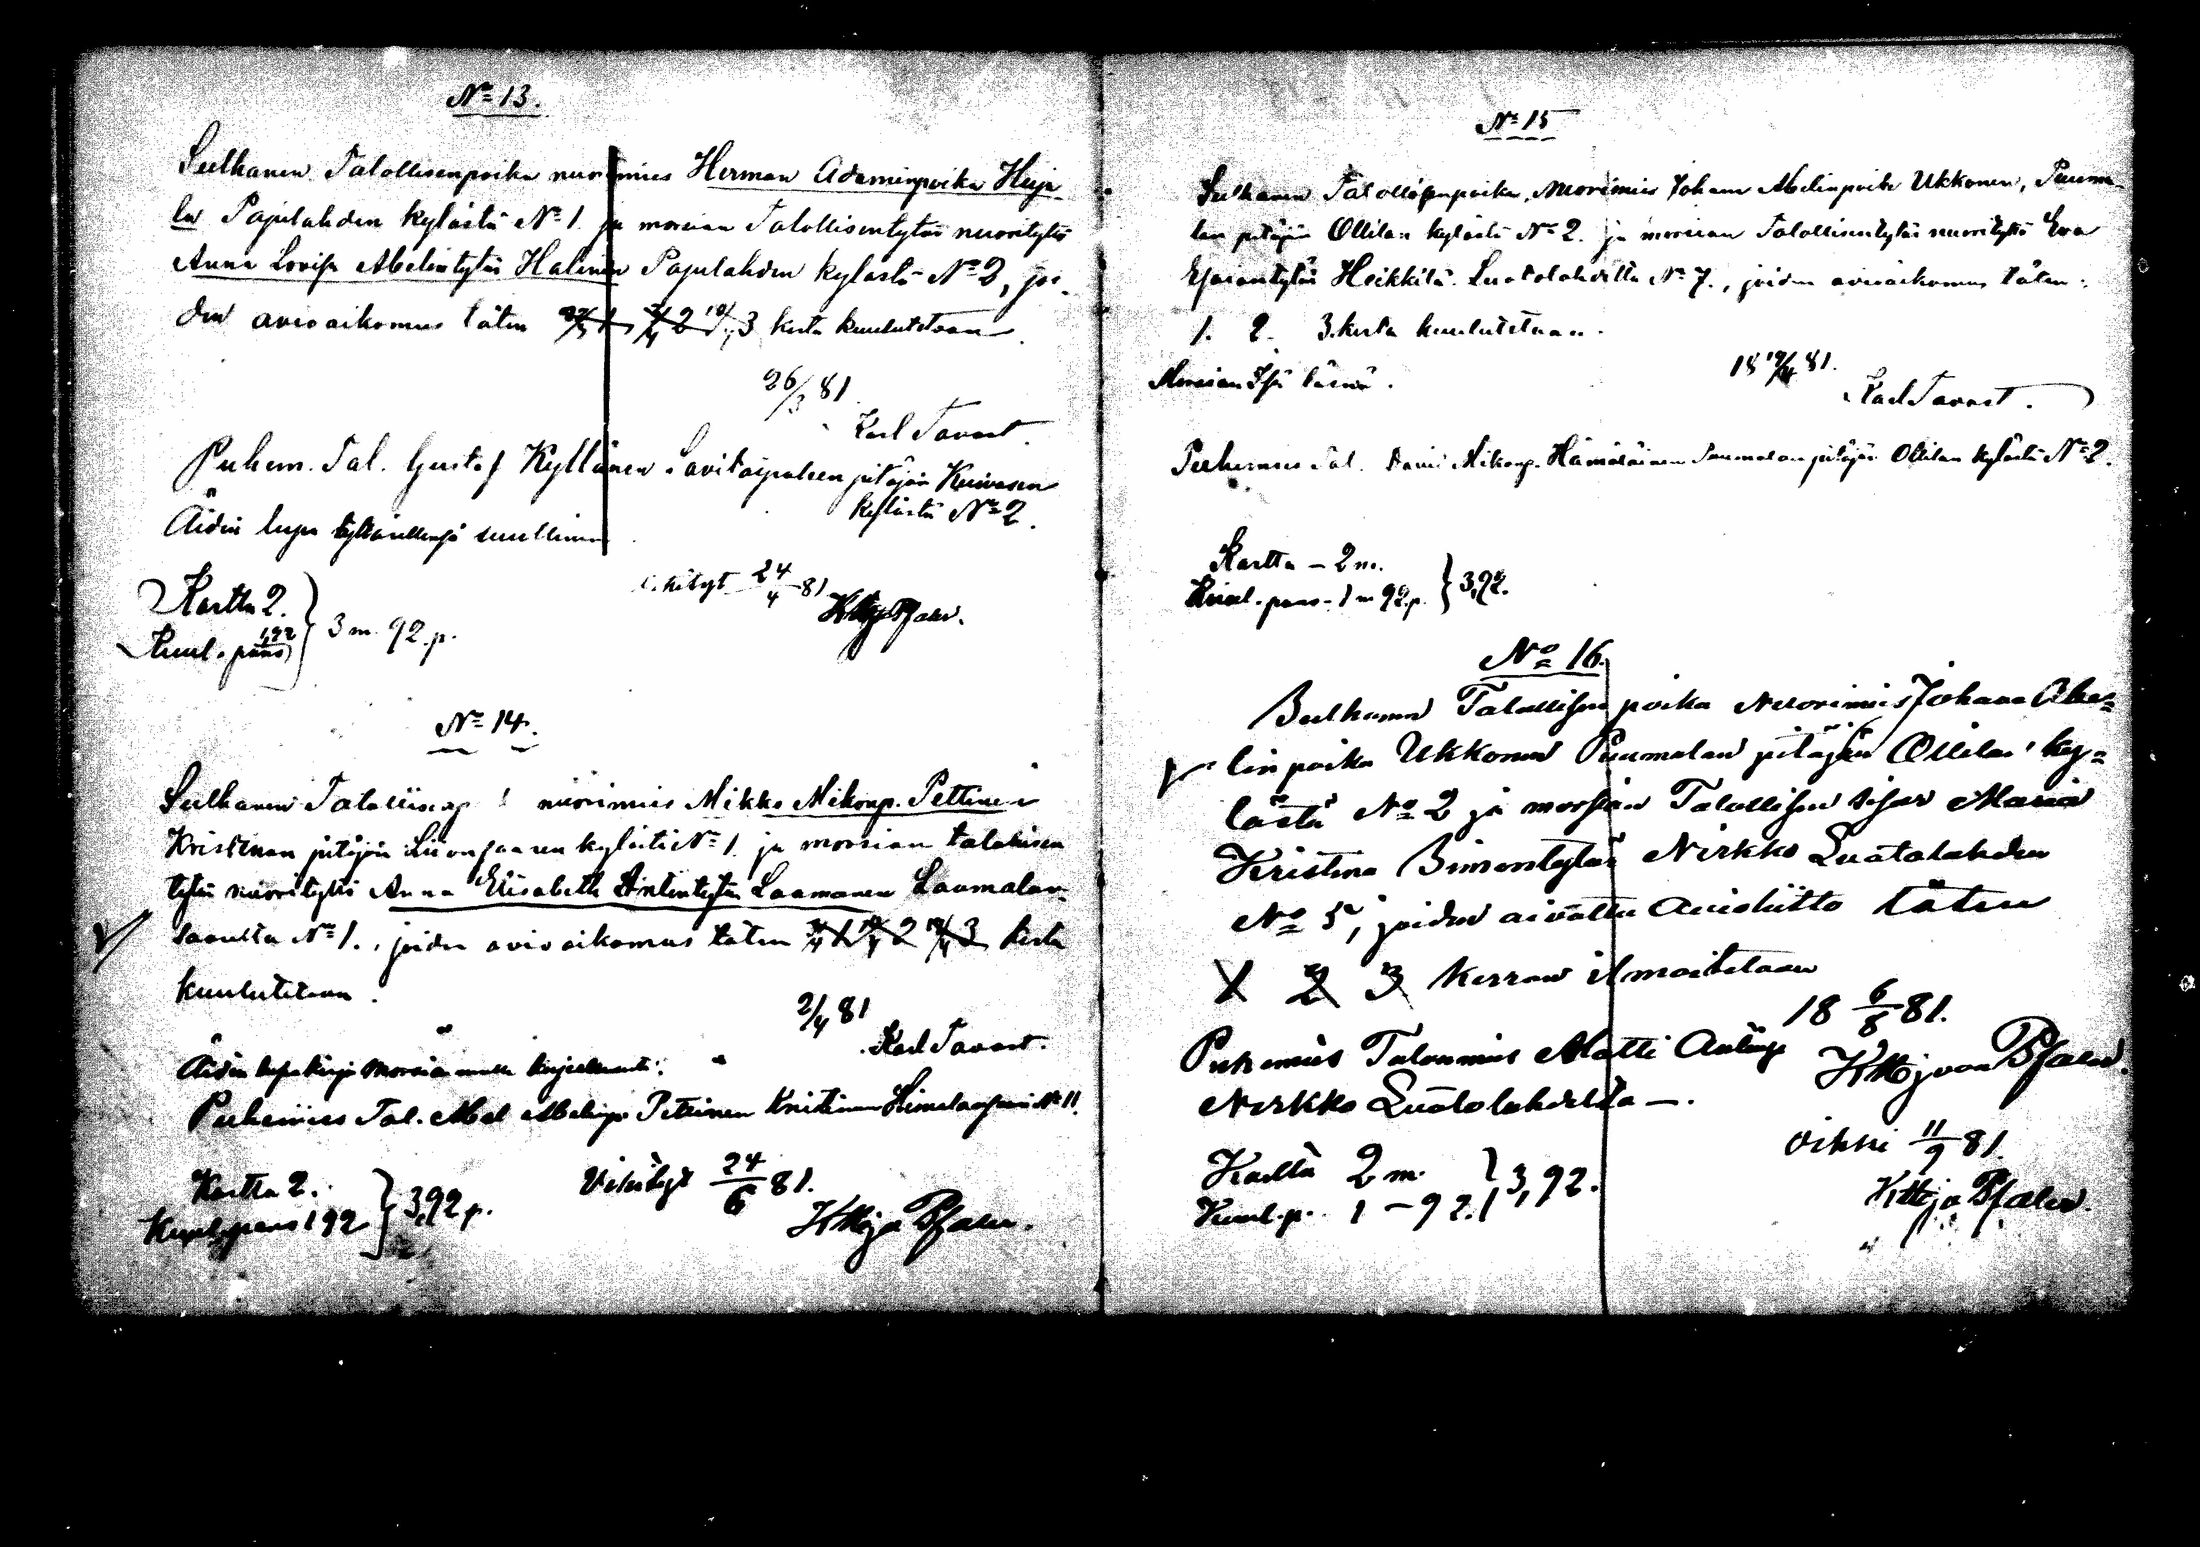 No 13.
Sulhanen Talollisenpoika nuorimies Herman Adaminpoika Heija-
la Pajulahden kylästä No 1. ja morsian Talollisentytär nuorityttö
Anna Lovisa Abelintytär Halinen Pajulahden kylästä No 3, joi-
den avioaikomus täten 1 2 3 kerta kuulutetaan.
26/3 81.
Karl Tavast.
Puhem. Tal. Gustaf Kyllänen Savitaipaleen pitäjän Kuivasen
kylästä No 2.
Äidin lupa tyttärellensä suullinen
Kartta 2.
Kuul. pass 1,92 } 3 m. 92 p.
24/4 81
No 14.
Sulhanen Talollisenp nuorimies Mikko Mikonp. Pettinen
Kristinan pitäjän Liionsaaren kylästä No 1. ja morsian talollisen
tytär nuorityttö Anna Elisabeth Antintytär Laamanen Laamalan-
saarelta No 1., joiden avioaikomus täten 1 2 3 kerta
kuulutetaan.
2/4 81
Karl Tavast.
Äidin lupakirja morsiamelle
Puhemies Tal. Abel Abelinp Pettinen Kristinan No 11.
Kartta 2.
Kuul. pass 1 92 } 3,92 p.
Vihityt 24/6 81.
No 15
Sulhanen Talollisenpoika, Nuorimies Johan Abelinpoika Ukkonen, Puuma-
lan pitäjän Ollilan kylästä No 2. ja morsian Talollisentytär nuorityttö Eva
Esaiantytär Heikkilä Luotolahdelta No 7., joiden avioaikomus täten:
1. 2. 3. kerta kuulutetaan.
Morsian Isä läsnä.
18 19/4 81.
Karl Tavast.
Puhemies Tal. Mikonp. Hämäläinen Puumalan pitäjän Ollilan kylästä No 2.
Kartta – 2 m.
Kuul. pass – 1 m 92 p. } 3,92.
No 16.
Sulhanen Talollisen poika Nuorimies Johana Abe=
lin poika Ukkonen Puumalan pitäjän Ollilan ky=
lästä No 2 ja morsian Talollisen sisar Maria
Kristina Simontytär Nirkko Luotolahden
No 5, joiden aivottu Avioliitto täten
1 2 3 kerran ilmoitetaan
18 6/8 81.
Puhemies Talonmies Matti Antinp
Nirkko Luotolahdelta –.
Vihki 11/9 81.
Kartta 2 m.
Kuul. p. 1 – 92. } 3,92.